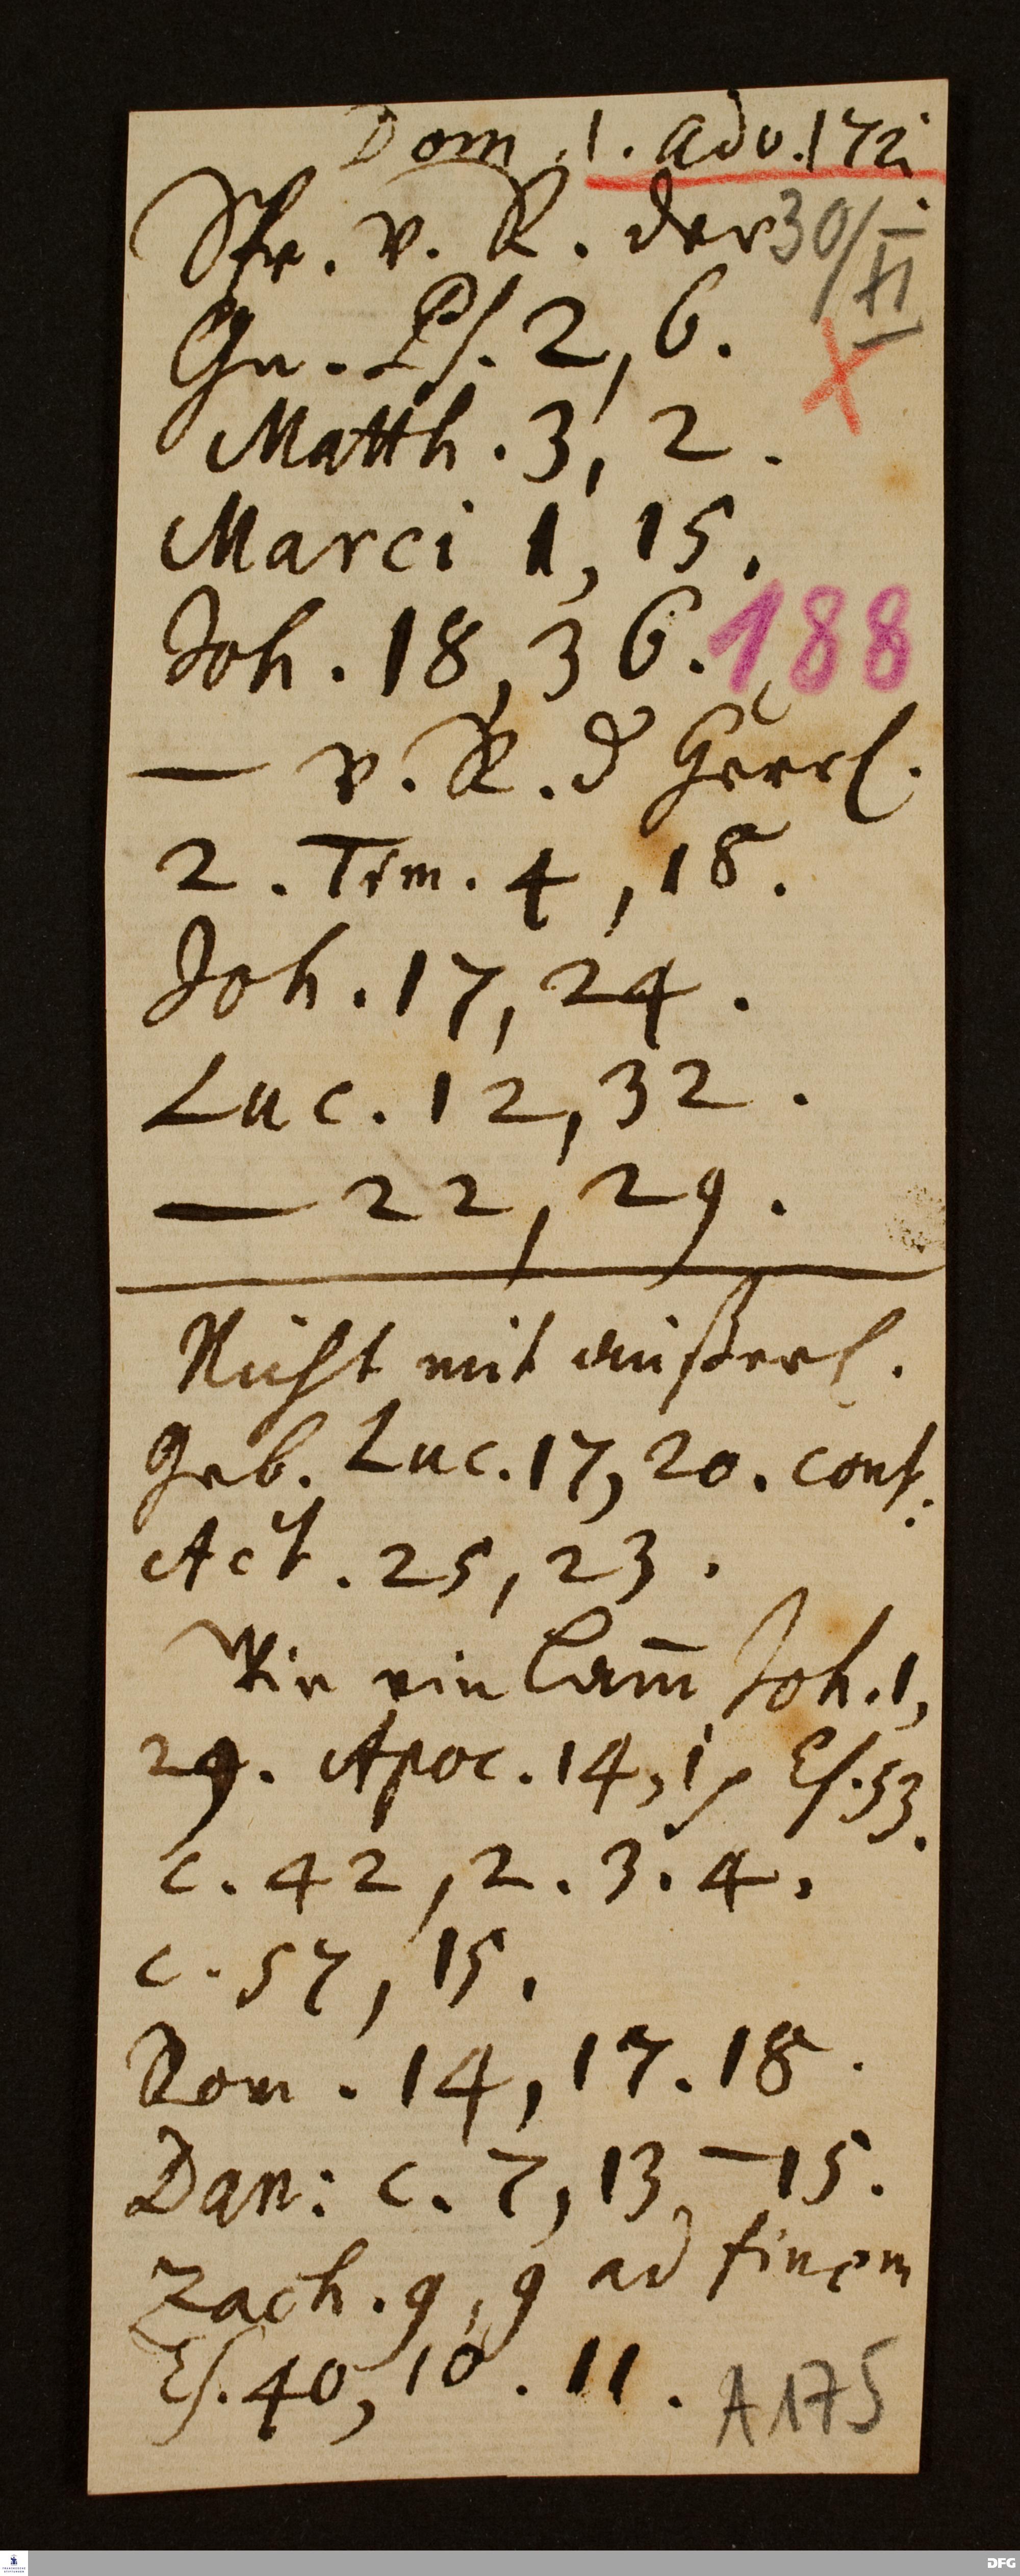 Dom. 1. Adv. 1721
Spr. v. R. der 30/XI
Gn. Ps. 2, 6.
Matth. 3, 2.
Marci 1, 15.
Joh. 18, 36. 188
— v. R. d Herrl.
2. Tim. 4, 18.
Joh. 17, 24.
Luc. 12, 32.
— 22, 29.
Nicht mit äußerl.
Geb. Luc. 17, 20. conf.
Act. 25, 23.
Wie ein Lam̅ Joh. 1,
29. Apoc. 14, 1 Es. 53.
c. 42, 2. 3. 4.
c. 57, 15.
Rom. 14, 17. 18.
Dan: c. 7, 13 — 15.
Zach. 9, 9 ad finem
Es. 40, 10. 11. A 175
DFG